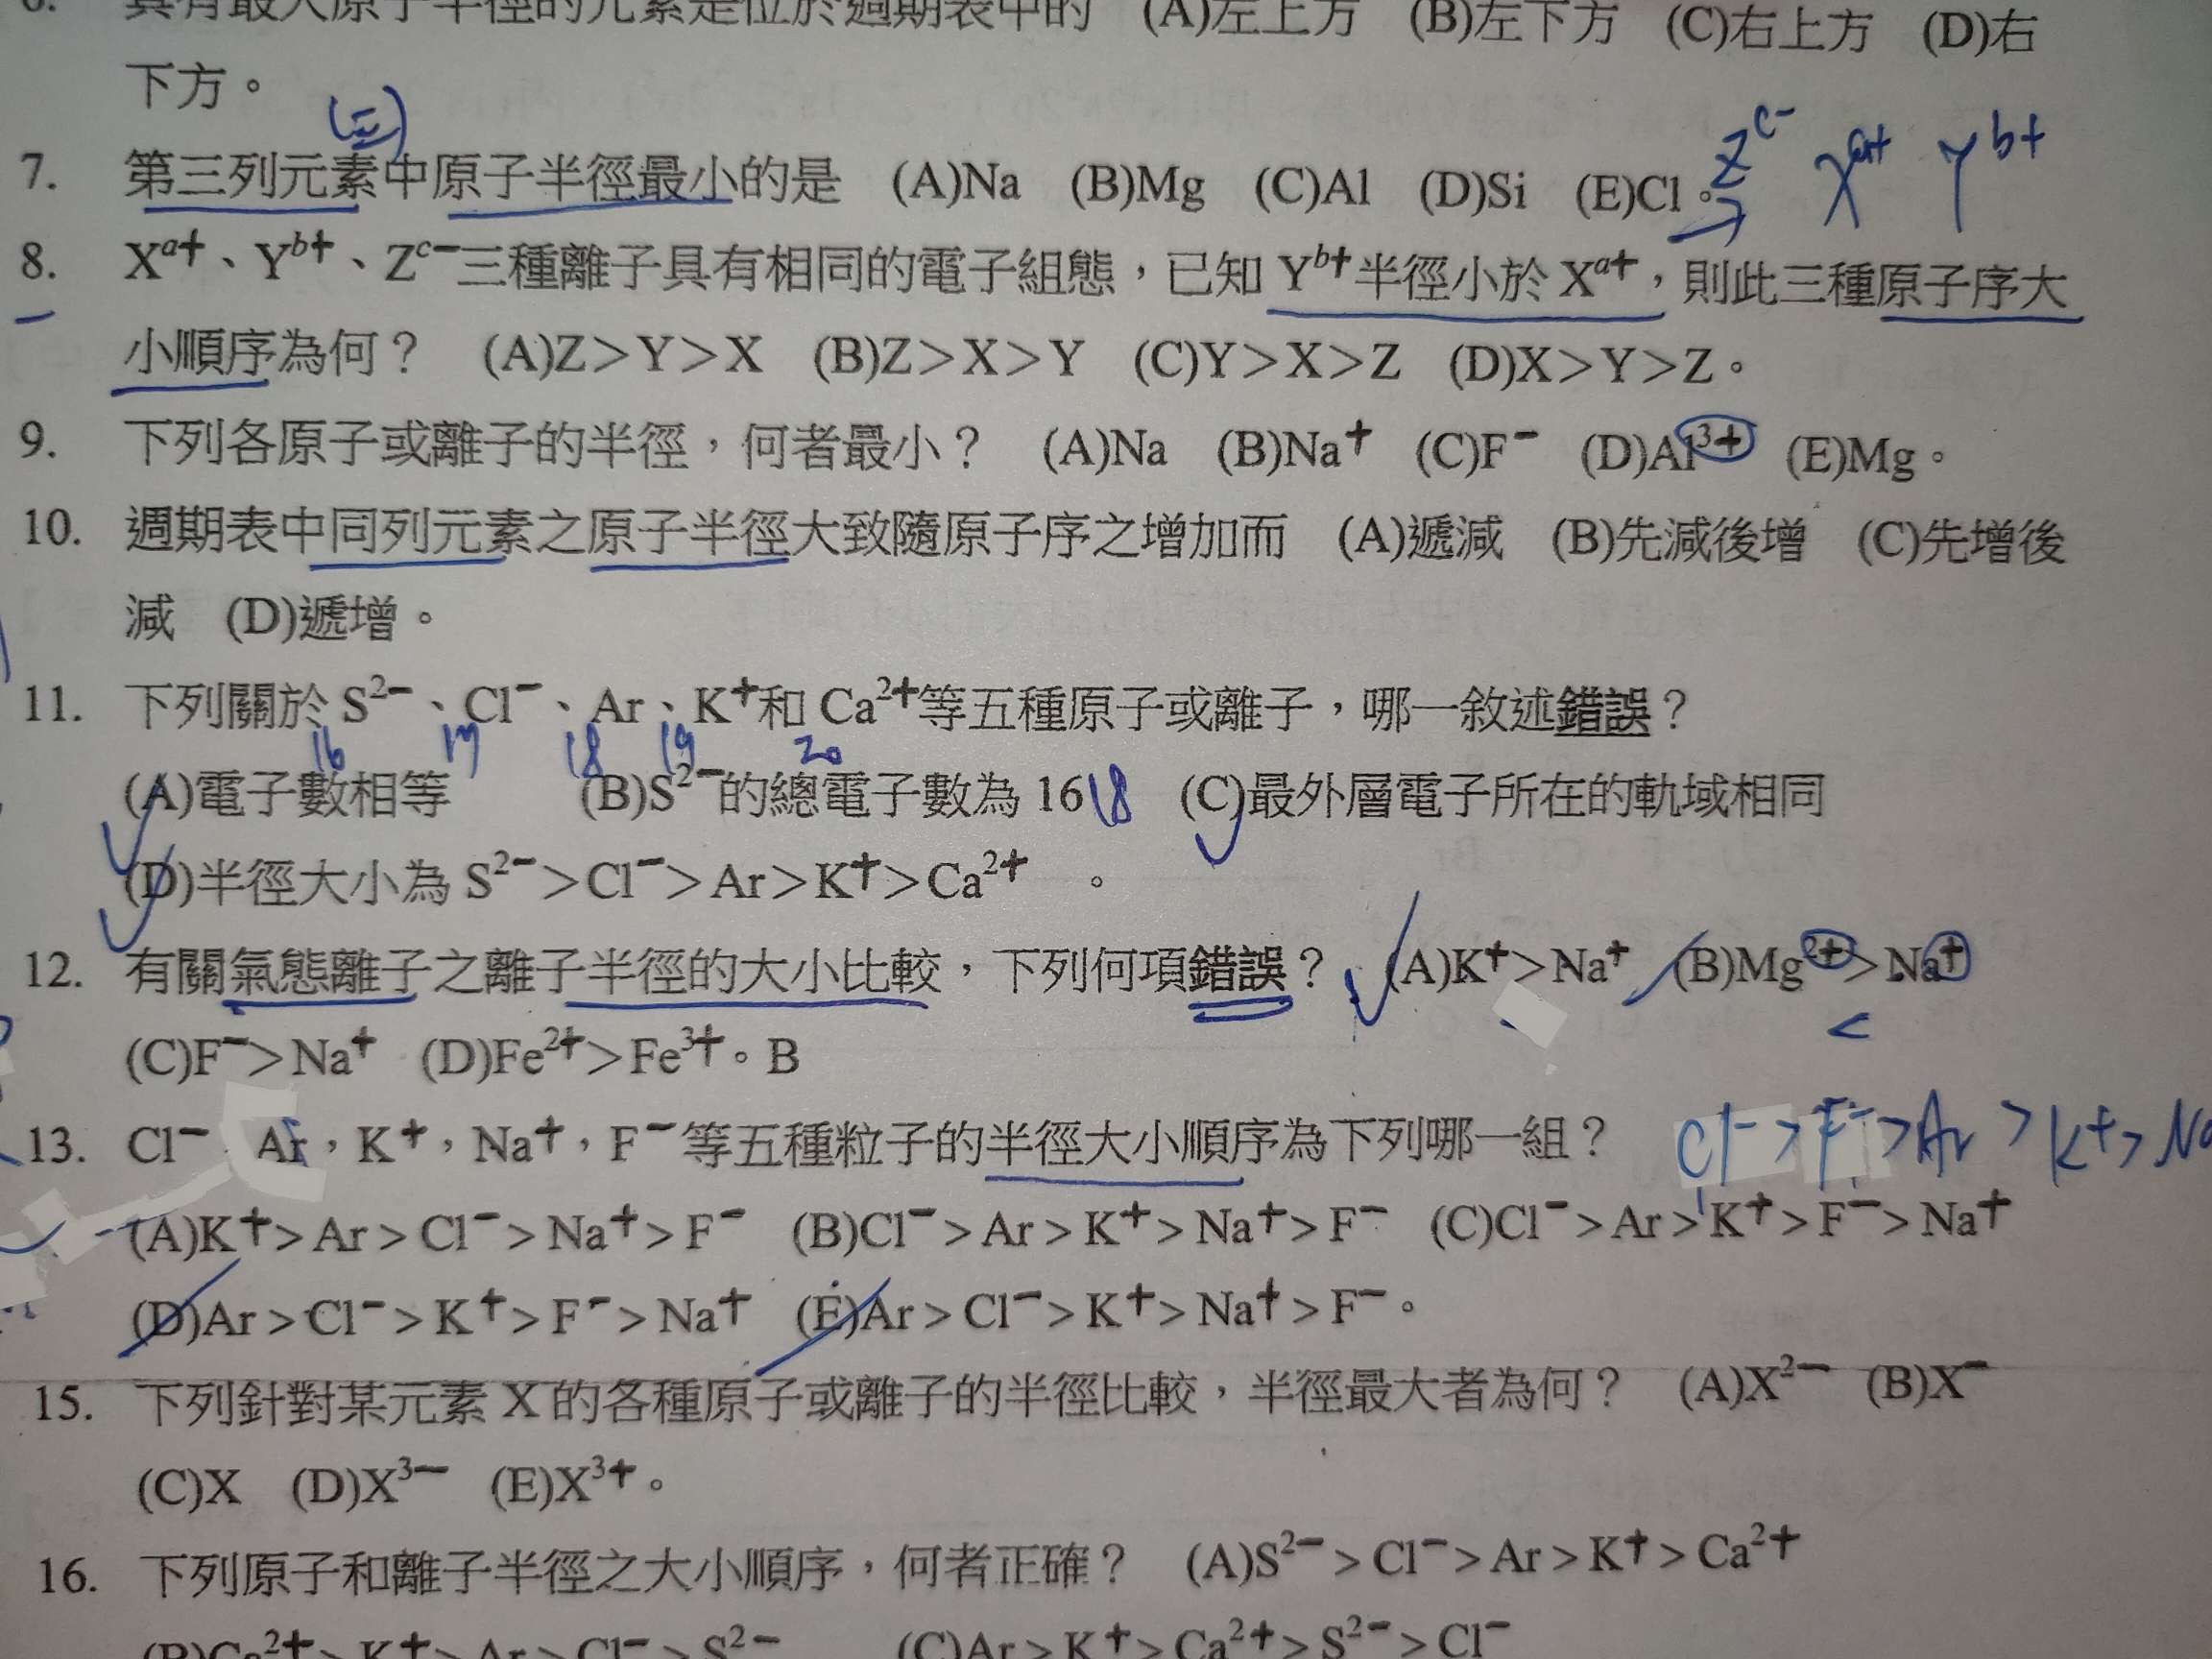 6. 具有最大原子半徑的元素是位於週期表中的 (A)左上方 (B)左下方 (C)右上方 (D)右
下方。
(三)
7. 第三列元素中原子半徑最小的是 (A)Na (B)Mg (C)Al (D)Si (E)Cl。
Z^c- X^a+ Y^b+
8. X^a+、Y^b+、Z^c-三種離子具有相同的電子組態，已知 Y^b+半徑小於 X^a+，則此三種原子序大
小順序為何？ (A)Z＞Y＞X (B)Z＞X＞Y (C)Y＞X＞Z (D)X＞Y＞Z。
9. 下列各原子或離子的半徑，何者最小？ (A)Na (B)Na⁺ (C)F⁻ (D)Al³⁺ (E)Mg。
10. 週期表中同列元素之原子半徑大致隨原子序之增加而 (A)遞減 (B)先減後增 (C)先增後
減 (D)遞增。
11. 下列關於 S²⁻、Cl⁻、Ar、K⁺和 Ca²⁺等五種原子或離子，哪一敘述錯誤？
16 17 18 19 20
(A)電子數相等 (B)S²⁻的總電子數為 16 18 (C)最外層電子所在的軌域相同
(D)半徑大小為 S²⁻＞Cl⁻＞Ar＞K⁺＞Ca²⁺ 。
12. 有關氣態離子之離子半徑的大小比較，下列何項錯誤？ (A)K⁺＞Na⁺ (B)Mg²⁺＞Na⁺
<
(C)F⁻＞Na⁺ (D)Fe²⁺＞Fe³⁺。B
13. Cl⁻ Ar，K⁺，Na⁺，F⁻等五種粒子的半徑大小順序為下列哪一組？ Cl⁻ > F⁻ > Ar > K+ > Na
(A)K⁺＞Ar＞Cl⁻＞Na⁺＞F⁻ (B)Cl⁻＞Ar＞K⁺＞Na⁺＞F⁻ (C)Cl⁻＞Ar＞K⁺＞F⁻＞Na⁺
(D)Ar＞Cl⁻＞K⁺＞F⁻＞Na⁺ (E)Ar＞Cl⁻＞K⁺＞Na⁺＞F⁻。
15. 下列針對某元素 X 的各種原子或離子的半徑比較，半徑最大者為何？ (A)X²⁻ (B)X⁻
(C)X (D)X³⁻ (E)X³⁺。
16. 下列原子和離子半徑之大小順序，何者正確？ (A)S²⁻＞Cl⁻＞Ar＞K⁺＞Ca²⁺
(B)Ca²⁺＞K⁺＞Ar＞Cl⁻＞S²⁻ (C)Ar＞K⁺＞Ca²⁺＞S²⁻＞Cl⁻